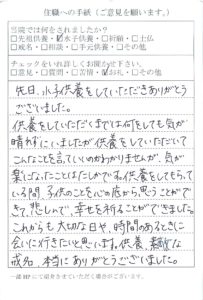 住職への手紙(ご意見を願います。)
当院では何をされましたか?
□先祖供養・☑水子供養・□祈願・□土仏
□戒名・□相談・□手元供養・□その他
チェックをいれ詳しくお聞かせ下さい。
□意見・□質問・□苦情・☑お礼・□その他
先日、水子供養をしていただきありがとう
ございました。
供養をしていただくまでは何をしても気が
晴れずにいましたが供養をしていただいて
こんなことを言っていいのかわかりませんが、気が
楽になったことはたしかで私供養をしてもらっ
ている間、子供のことを心の底から思うことがで
きて、悲しんで、幸せを祈ることができました。
これからも大切な日や、時間のあるときに
会いに行きたいと思います。供養、素敵な
戒名、本当にありがとうございました。
一部HPにて紹介させていただく場合がございます。